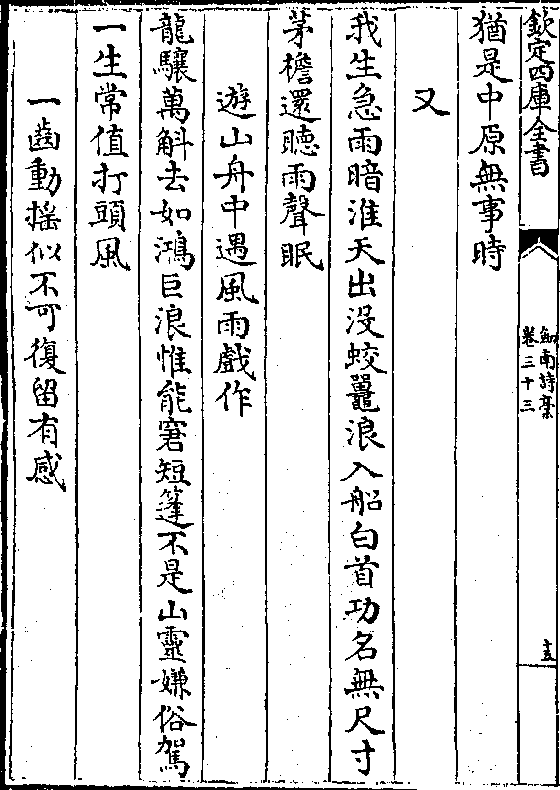 欽定四庫全書
劒南詩槀
卷三十三
猶是中原無事時
又
我生急雨暗淮天出没蛟鼉浪入船白首功名無尺寸
茅檐還聽雨聲眠
遊山舟中遇風雨戲作
龍驤萬斛去如鴻巨浪惟能窘短篷不是山靈嫌俗駕
一生常值打頭風
一齒動揺似不可復留有感